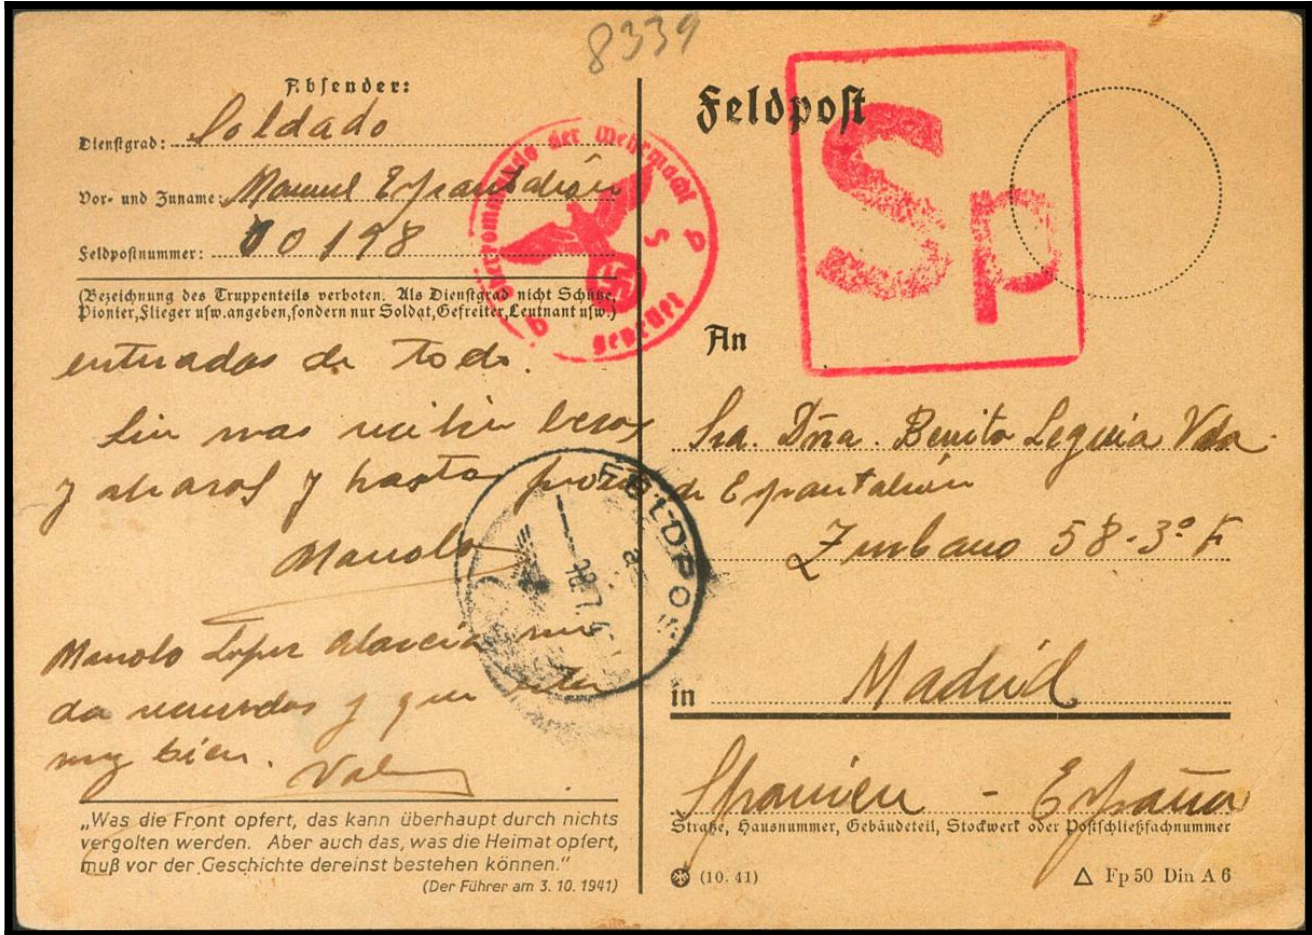 8339
Absender:
Dienstgrad: Soldado
Vor- und Zuname: Manuel Espantaleón
Feldpostnummer: 00198
(Bezeichnung des Truppenteils verboten. Als Dienstgrad nicht Schütze,
Pionier, Flieger usw. angeben, sondern nur Soldat, Gefreiter, Leutnant usw.)
enteradas de todo.
Sin mas reciban besos
y abrazos y hasta pronto
Manolo
Manolo López
da recuerdos y que está
muy bien.
„Was die Front opfert, das kann überhaupt durch nichts
vergolten werden. Aber auch das, was die Heimat opfert,
muß vor der Geschichte dereinst bestehen können.“
(Der Führer am 3. 10. 1941)
Oberkommando der Wehrmacht
geprüft
b
b
FELDPOST
a
Feldpost
Sp
An
Sra. Dña. Benita Leguia Vda
de Espantaleón
Zurbano 58-3º
in Madrid
Spanien - España
Straße, Hausnummer, Gebäudeteil, Stockwerk oder Postschließfachnummer
(10. 41)
Fp 50 Din A 6